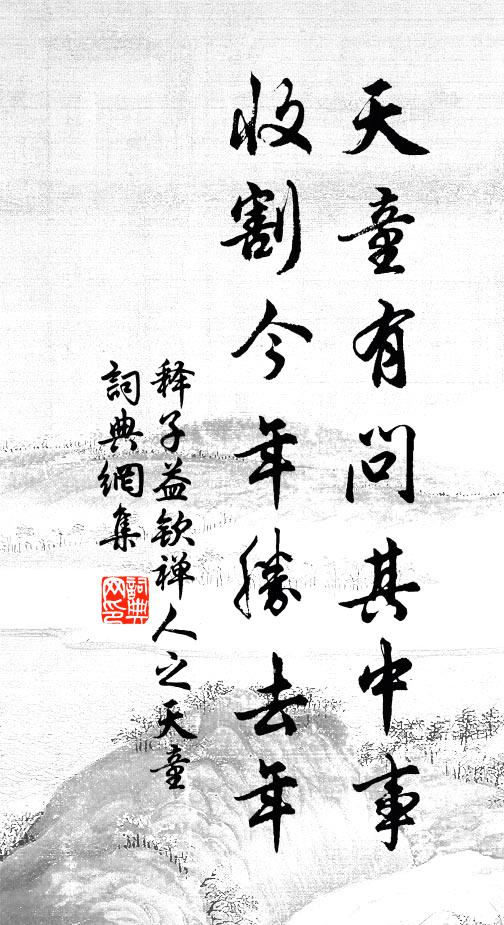 天童有問其中事
收割今年勝去年
释子益钦禅人之天童
詞典網集
詞典